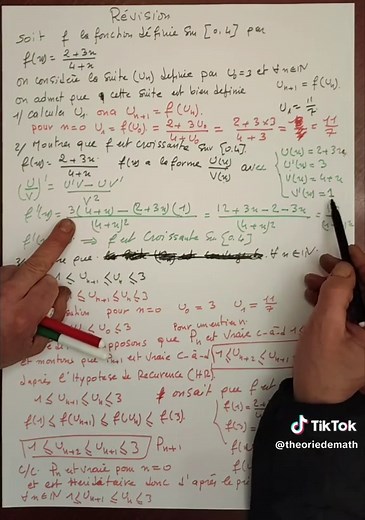 Révision
Soit f la fonction définie sur [0.4] par
f(x) = (2+3x)/(4+x)
on considère la suite (Un) definie par U0=3 et ∀n∈IN
Un+1 = f(Un).
on admet que cette suite est bien definie
1/ calculer U1. on a Un+1 = f(Un) U1 = 11/7
pour n=0 U1 = f(U0) = (2+3U0)/(4+U0) = (2+3×3)/(4+3) = 11/7
2/ Montrer que f est croissante sur [0.4]
f(x) = (2+3x)/(4+x) f(x) a la forme U(x)/V(x) avec
U(x) = 2+3x
U'(x) = 3
V(x) = 4+x
V'(x) = 1
(U/V)' = (U'V - UV')/V²
f'(x) = (3(4+x) - (2+3x)(1))/(4+x)² = (12+3x-2-3x)/(4+x)² =
⟹ f est croissante sur [0.4]
∀n∈IN
1 ≤ Un ≤ 3
≤ Un ≤ 3
pour n=0 U0 = 3 U1 = 11/7
≤ U0 ≤ 3
supposons que Pn est vraie c-à-d 1 ≤
et montrons que Pn+1 est vraie c-à-d 1 ≤ Un+2 ≤ Un+1
d'après l'Hypotese de Recurence (HR)
1 ≤ Un+1 ≤ Un ≤ 3 on sait que f est
f(1) ≤ f(Un+1) ≤ f(Un) ≤ f(3).
1 ≤ Un+2 ≤ Un+1 ≤ 3 Pn+1
C/C: Pn est vraie pour n=0
et est Heriditaire donc d'après le
∀n∈IN 1 ≤ Un+1 ≤ Un ≤ 3
TikTok
@theoriedemath